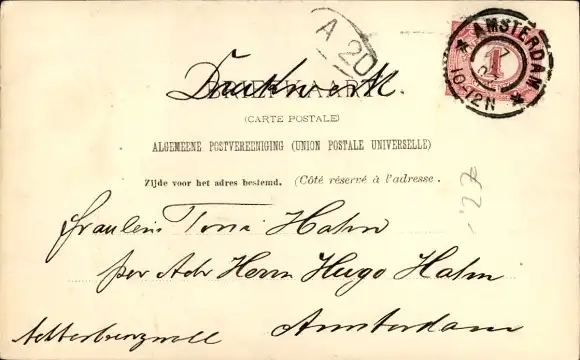 A 20
AMSTERDAM
10-12N
1
Drukwerk.
BRIEFKAART
(CARTE POSTALE)
ALGEMEENE POSTVEREENIGING (UNION POSTALE UNIVERSELLE)
Zijde voor het adres bestemd. (Côté réservé à l'adresse.
'27
Fräulein Toni Hahn
per Adr Herrn Hugo Hahn
Amsterdam